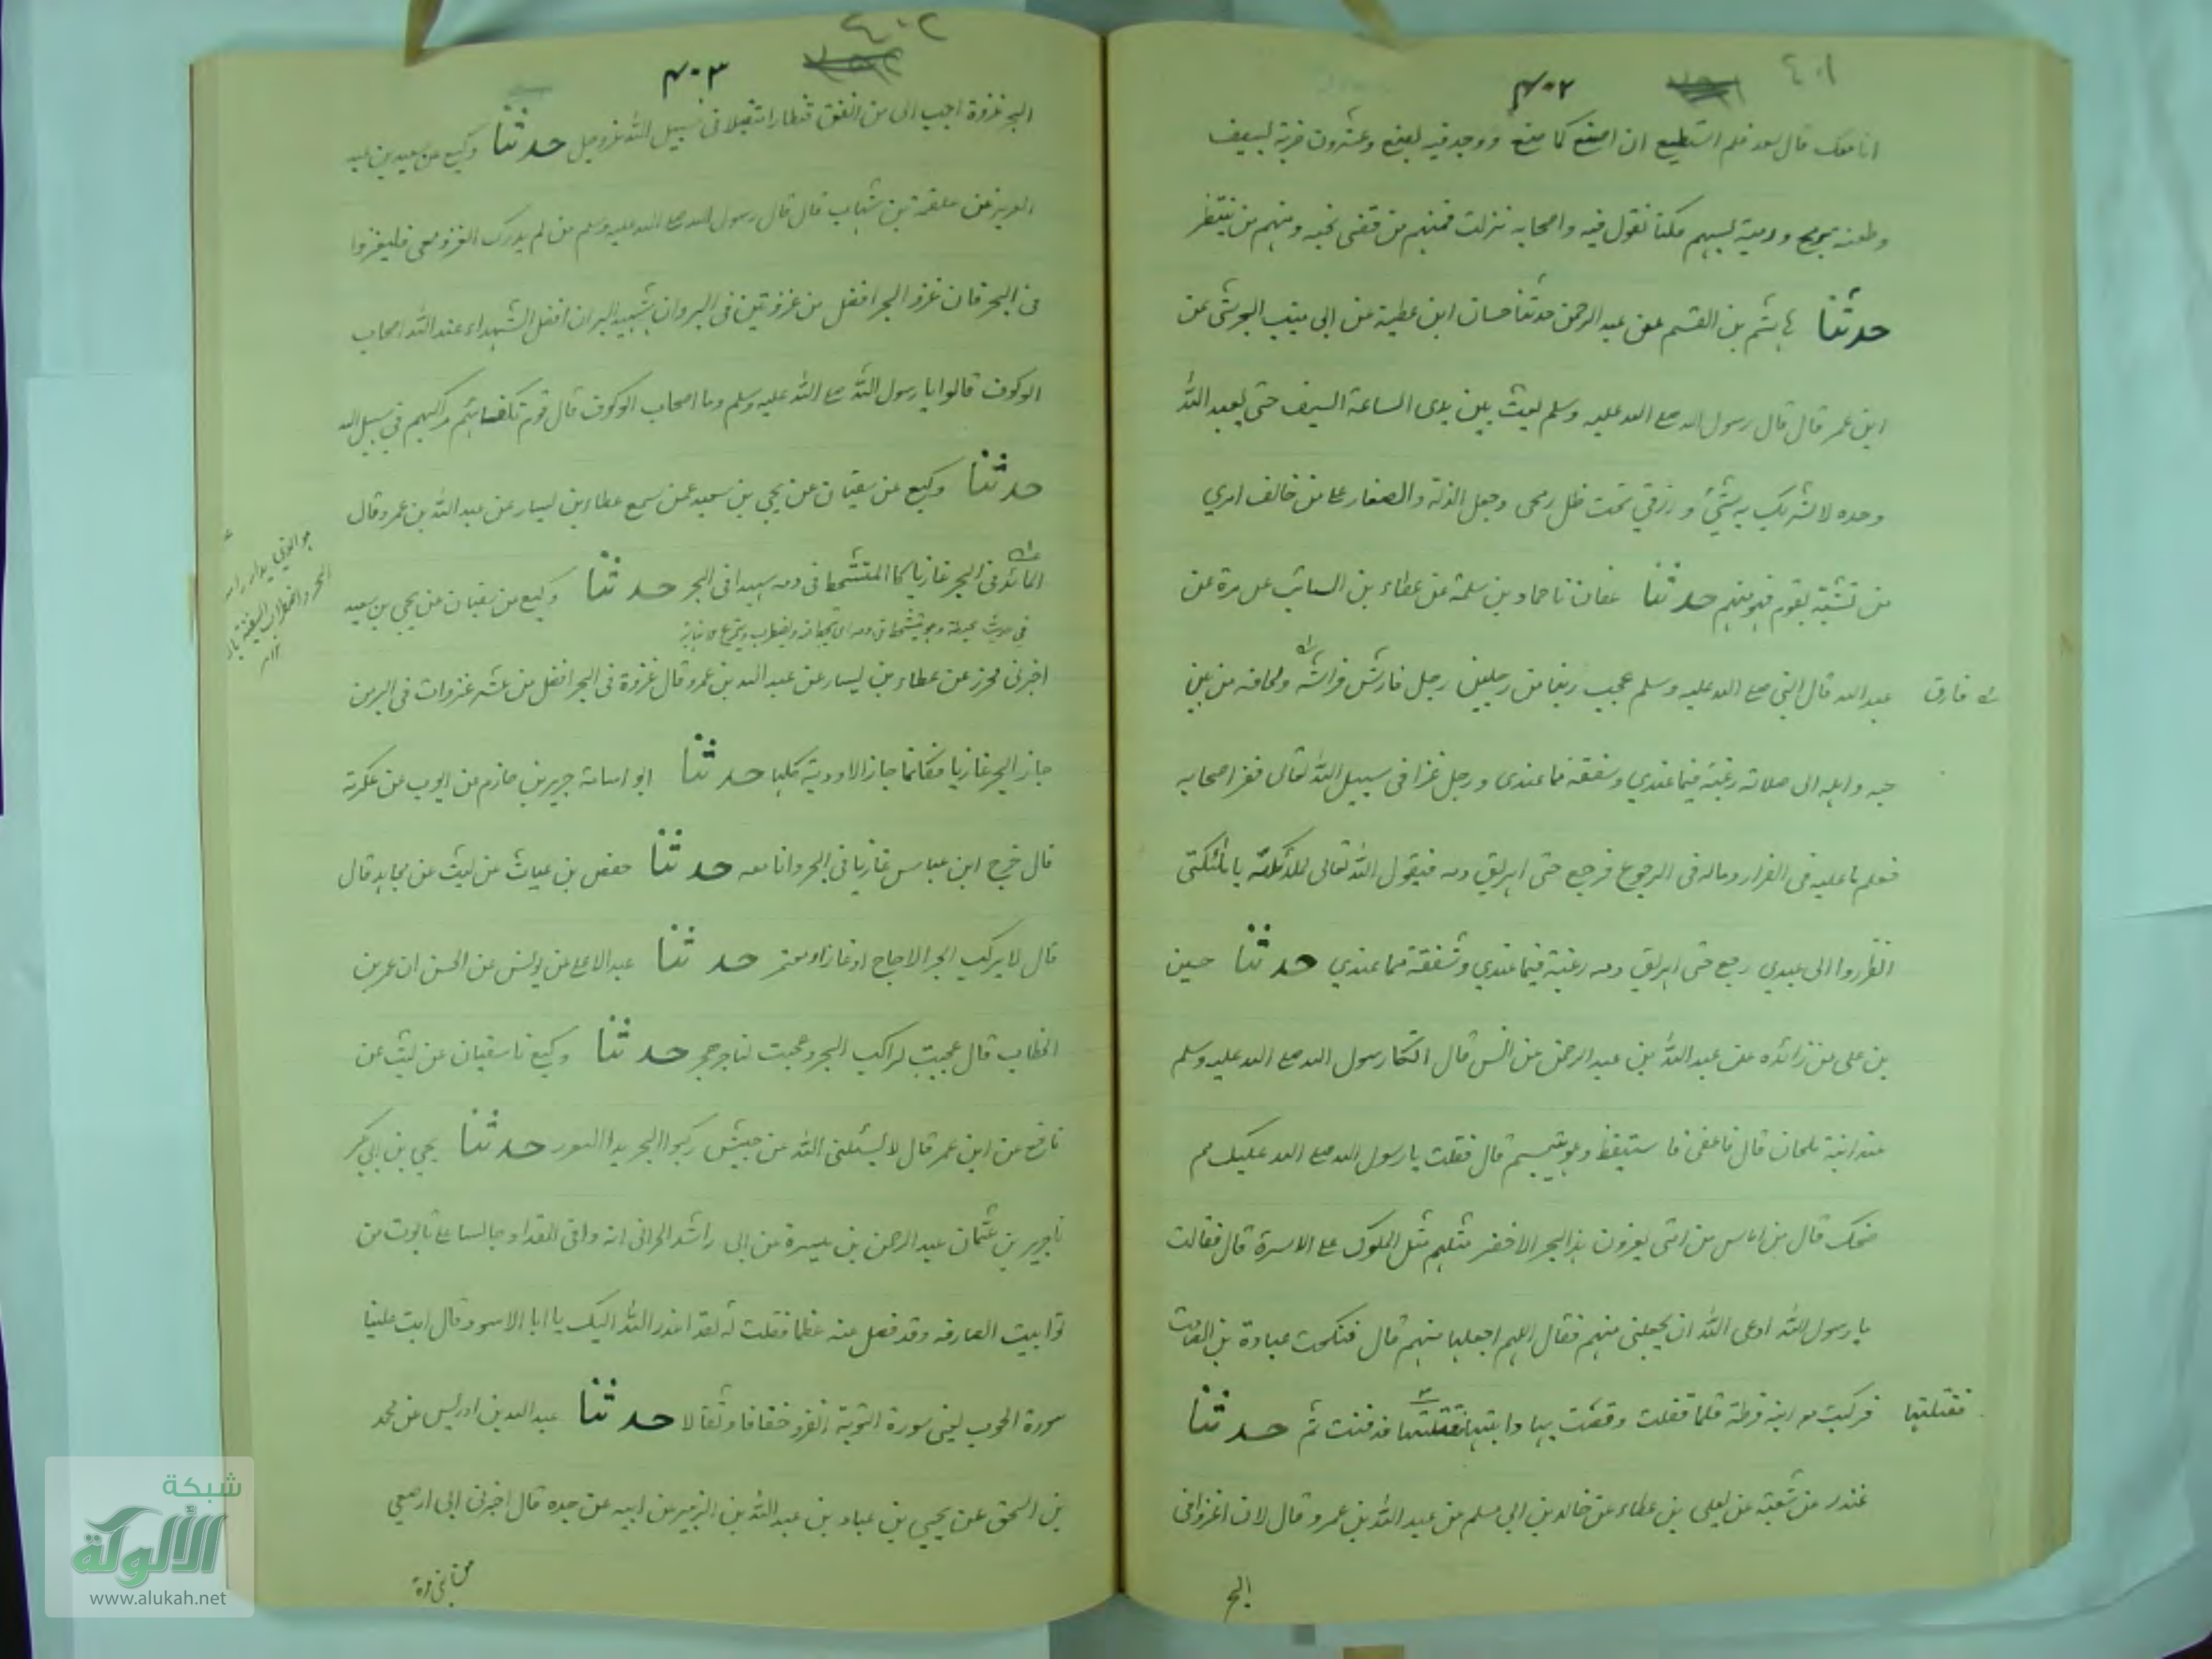 ٤٠١
٤٠٢
انا معك قال سعد فلم استطيع ان اصنع كما صنع ووجد فيه بضع وعشرون ضربة لسيف
وطعنه برمح ورمية بسهم فكنا نقول فيه واصحابه نزلت فمنهم من قضى نحبه ومنهم من ينتظر
حدثنا هاشم بن القسم عن عبد الرحمن حدثنا حسان ابن عطية عن ابى منيب الجرشى عن
ابن عمر قال قال رسول الله صلى الله عليه وسلم بعثت بين يدى الساعة السيف حتى يعبد الله
وحده لا شريك به شيئ ورزقي تحت ظل رمحى وجعل الذلة والصغار على من خالف امري
من تشبه بقوم فهو منهم حدثنا عفان نا حماد بن سلمة عن عطاء بن السائب عن مرة عن
عبد الله قال النبى صلى الله عليه وسلم عجب ربنا من رجلين رجل فارش فراشه ولحافه من بين
فارق
حبه واهله الى صلاته رغبة فيما عندي وشفقة مما عندى ورجل غزا فى سبيل الله تعالى ففر اصحابه
فعلم ما عليه فى الفرار وماله فى الرجوع فرجع حتى اهريق دمه فيقول الله تعالى للملائكة يا ملئكتى
انظروا الى عبدي رجع حتى اهريق دمه رغبة فيما عندي وشفقة مما عندي حدثنا حسين
بن على عن زائده عن عبد الله بن عبد الرحمن عن انس قال اتكا رسول الله صلى الله عليه وسلم
عند ابنة ملحان قال فاغفى فاستيقظ وهو يتبسم قال فقلت يا رسول الله صلى الله عليك مم
ضحك قال من اناس من امتى يغزون هذا البحر الاخضر مثلهم مثل الملوك على الاسرة قال فقالت
يا رسول الله ادعى الله ان يجعلنى منهم فقال اللهم اجعلها منهم قال فنكحت عبادة بن الصامت
فركبت مع ابنة قرظة فلما قفلت وقصت بها دابتها فقتلتها فدفنت ثم حدثنا
فقتلتها
غندر عن شعبة عن يعلى بن عطاء عن خالد بن ابى مسلم عن عبد الله بن عمرو قال لان اغزو فى
البح
٤٠٢
٤٠٣
البحر غزوة احب الى من انفق قنطارا متقبلا فى سبيل الله عز وجل حدثنا وكيع عن سعيد بن عبد
العزيز عن علقمة بن شهاب قال قال رسول الله صلى الله عليه وسلم من لم يدرك الغزو معى فليغزوا
فى البحر فان غزو البحر افضل من غزوتين فى البر وان شهيد البر ان افضل الشهداء عند الله اصحاب
الوكوف قالوا يا رسول الله صلى الله عليه وسلم وما اصحاب الوكوف قال قوم تكفأ بهم مراكبهم فى سبيل الله
حدثنا وكيع عن سفيان عن يحيى بن سعيد عمن سمع عطاء بن يسار عن عبد الله بن عمرو قال
المائد فى البحر غازيا كالمتشحط فى دمه شهيدا فى البحر حدثنا وكيع عن سفيان عن يحيى بن سعيد
اخبرنى مخبر عن عطاء بن يسار عن عبد الله بن عمرو قال غزوة فى البحر افضل من عشر غزوات فى البر من
جاز البحر غازيا فكانما جاز الاودية كلها حدثنا ابو اسامة جرير بن حازم عن ايوب عن عكرمة
قال خرج ابن عباس غازيا فى البحر وانا معه حدثنا حفص بن غياث عن ليث عن مجاهد قال
قال لا يركب البحر الا حاج او غاز او معتمر حدثنا عبد الاعلى عن يونس عن الحسن ان عمر بن
الخطاب قال عجبت لراكب البحر وعجبت لتاجر هجر حدثنا وكيع نا سفيان عن ليث عن
نافع عن ابن عمر قال لا يسئلنى الله عن جيش ركبوا البحر ابدا حدثنا يحيى بن ابى بكر
نا جرير بن عثمان عبد الرحمن بن ميسرة عن ابى راشد الحرانى انه وافى المقداد جالسا على تابوت من
توابيت الصارفه وقد فضل عنه عظما فقلت له لقد اعذر الله اليك يا ابا الاسود قال ابت علينا
سورة الحوب يعنى سورة التوبة انفروا خفافا وثقالا حدثنا عبد الله بن ادريس عن محمد
بن اسحق عن يحيى بن عباد بن عبد الله بن الزبير عن ابيه عن جده قال اخبرنى ابى ارضعى
من بنى مرة
شبكة
الألوكة
www.alukah.net